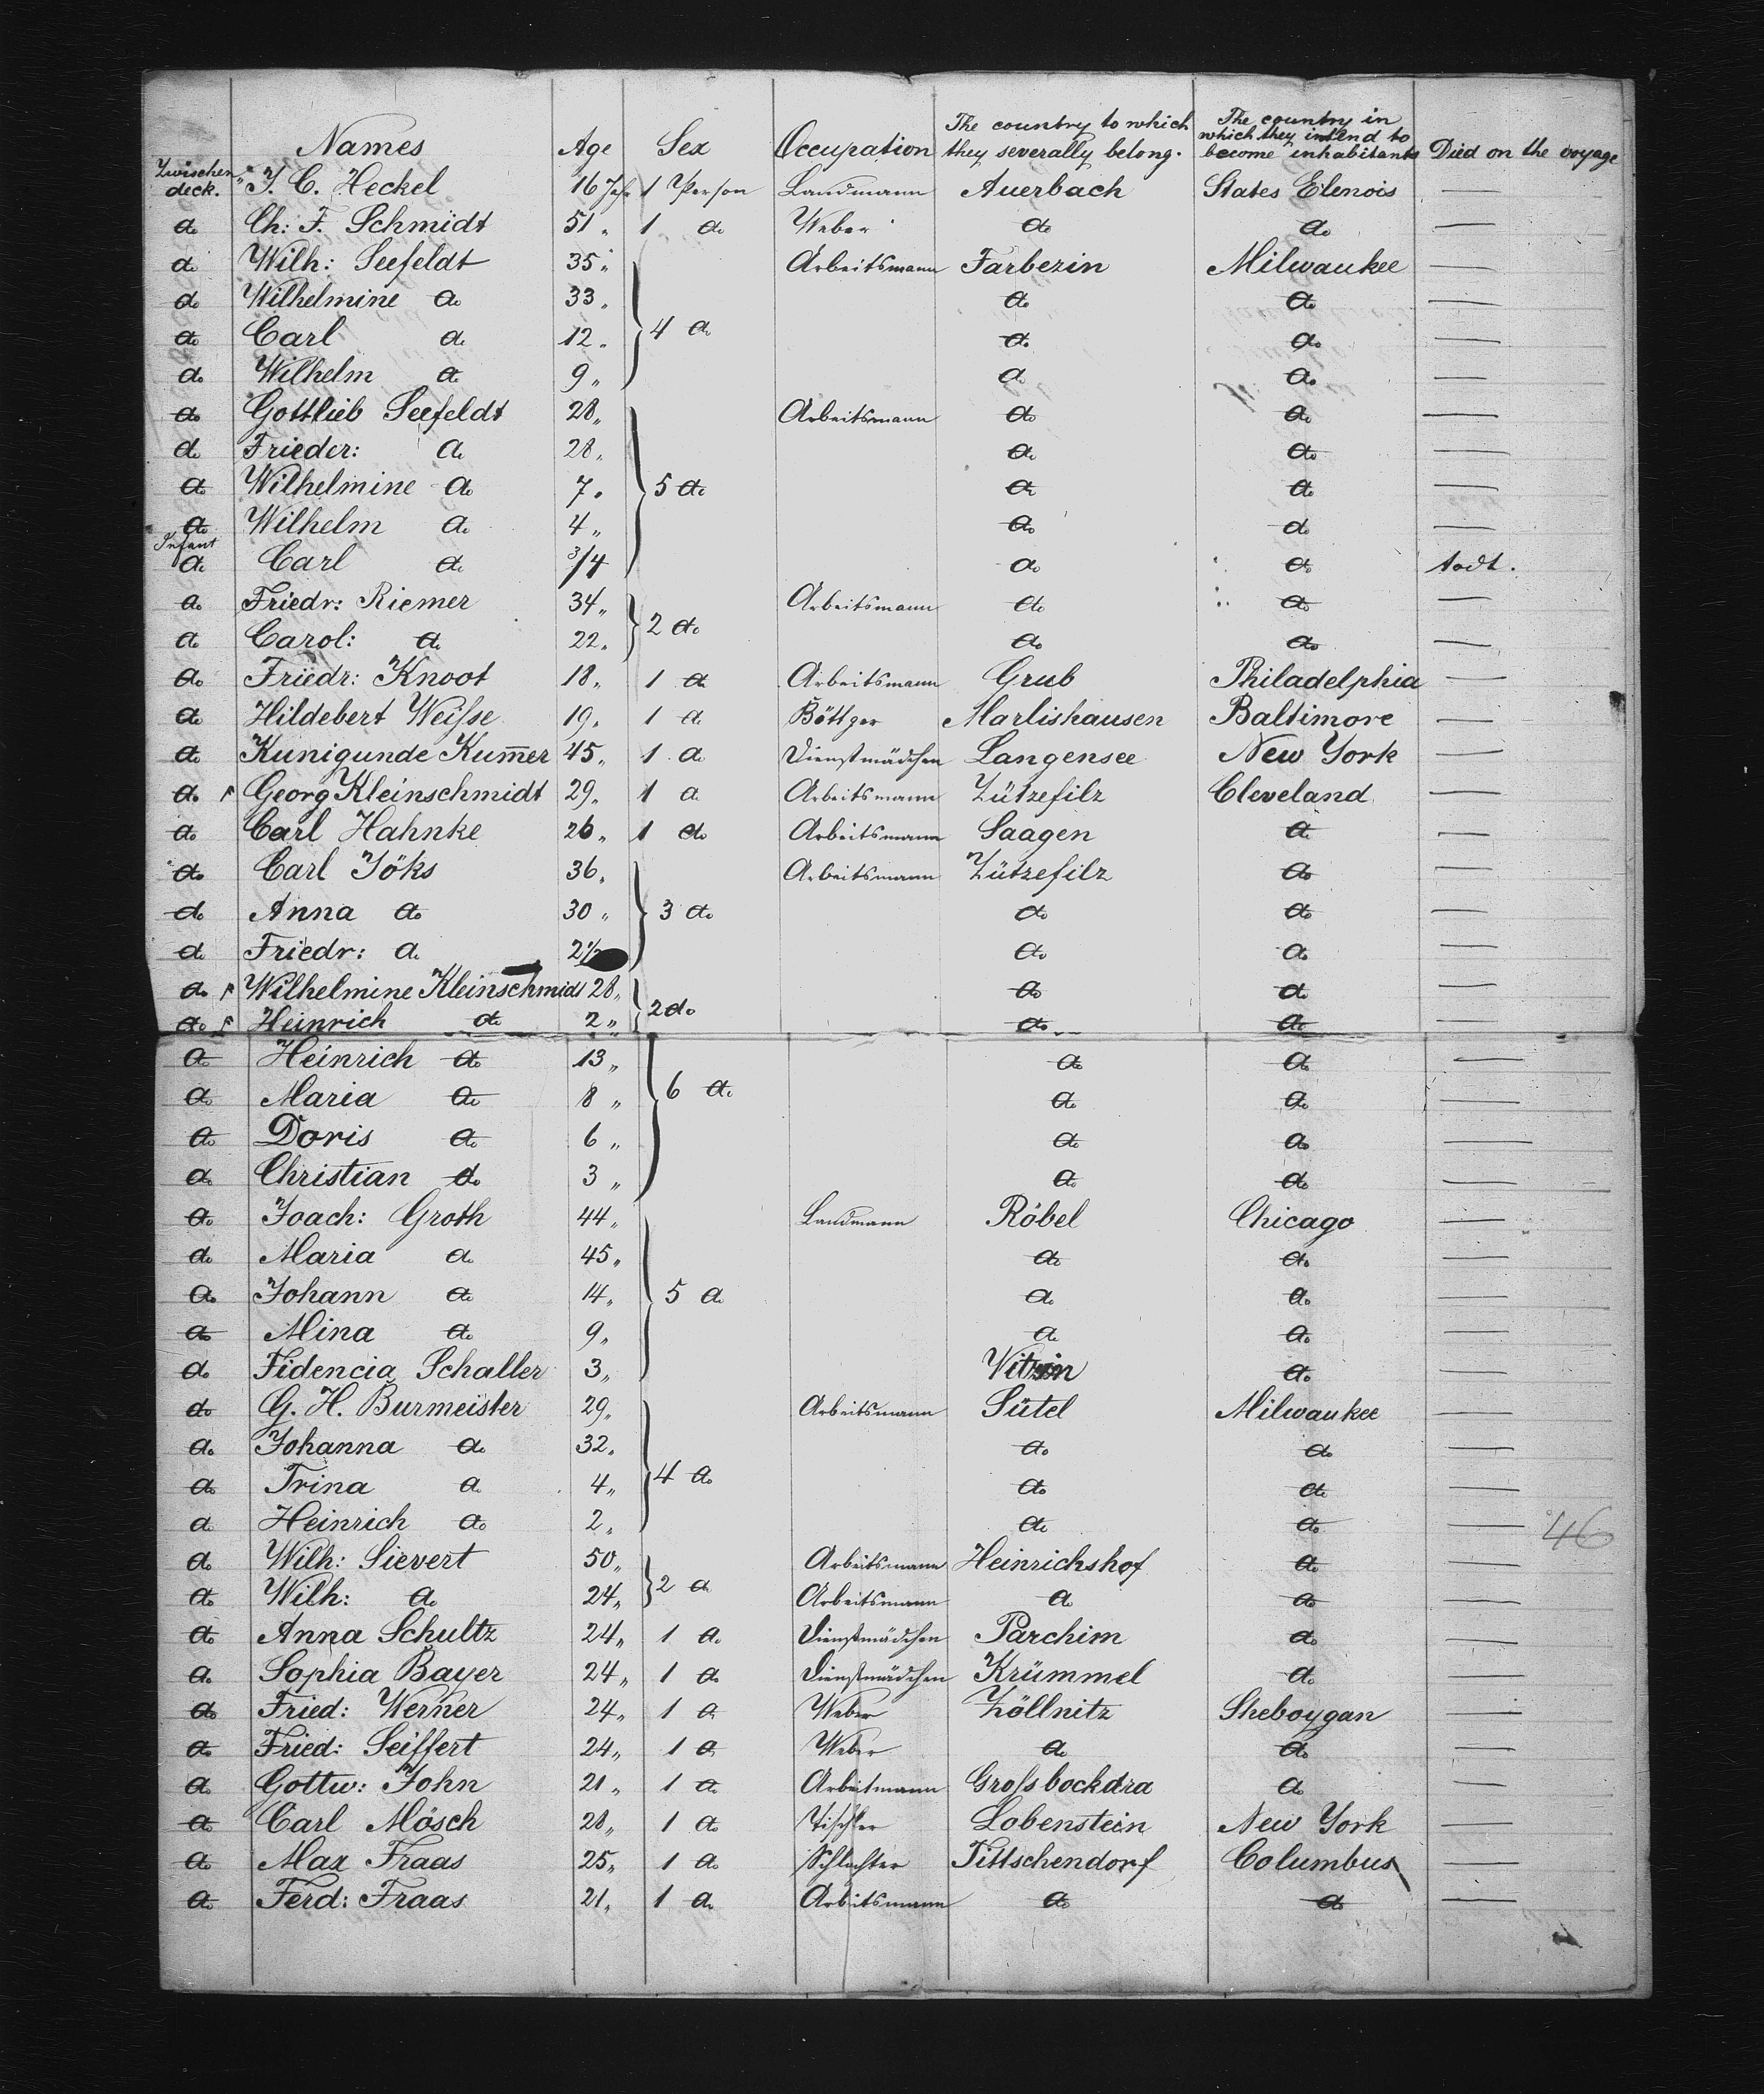 Names Age Sex Occupation The country to which they severally belong. The country in which they intend to become inhabitants Died on the voyage
Zwischendeck. J. C. Heckel 16 Jahr 1 Person Landmann Auerbach States Elenois —
do Ch: F. Schmidt 51 " 1 do Weber do do —
do Wilh: Seefeldt 35 " Arbeitsmann Farbezin Milwaukee —
do Wilhelmine do 33 " do do —
do Carl do 12 " 4 do do do —
do Wilhelm do 9 " do do —
do Gottlieb Seefeldt 28 " Arbeitsmann do do —
do Frieder: do 28 " do do —
do Wilhelmine do 7 " 5 do do do —
do Wilhelm do 4 " do do —
Infant do Carl do 3/4 do do todt.
do Friedr: Riemer 34 " Arbeitsmann do do —
do Carol: do 22 " 2 do do do —
do Friedr: Knoot 18 " 1 do Arbeitsmann Grub Philadelphia —
do Hildebert Weisse 19 " 1 do Böttger Marlishausen Baltimore —
do Kunigunde Kum̅er 45 " 1 do Dienstmädchen Langensee New York —
do Georg Kleinschmidt 29 " 1 do Arbeitsmann Zützefilz Cleveland —
do Carl Hahnke 26 " 1 do Arbeitsmann Saagen do —
do Carl Jöks 36 " Arbeitsmann Zützefilz do —
do Anna do 30 " 3 do do do —
do Friedr: do 2 1/2 do do —
do Wilhelmine Kleinschmidt 28 " do do —
do Heinrich do 2 " 2 do do do —
do Heinrich do 13 " do do —
do Maria do 8 " 6 do do do —
do Doris do 6 " do do —
do Christian do 3 " do do —
do Joach: Groth 44 " Landmann Röbel Chicago —
do Maria do 45 " do do —
do Johann do 14 " 5 do do do —
do Mina do 9 " do do —
do Fidencia Schaller 3 " do —
do G. H. Burmeister 29 " Arbeitsmann Sütel Milwaukee —
do Johanna do 32 " do do —
do Trina do 4 " 4 do do do —
do Heinrich do 2 " do do — 46
do Wilh: Sievert 50 " Arbeitsmann Heinrichshof do —
do Wilh: do 24 " 2 do Arbeitsmann do do —
do Anna Schultz 24 " 1 do Dienstmädchen Parchim do —
do Sophia Bayer 24 " 1 do Dienstmädchen Krümmel do —
do Fried: Werner 24 " 1 do Weber Zöllnitz Sheboygan —
do Fried: Seiffert 24 " 1 do Weber do do —
do Gottw: John 21 " 1 do Arbeitmann Grossbockdra do —
do Carl Mösch 28 " 1 do Tischler Lobenstein New York —
do Max Fraas 25 " 1 do Schlachter Tittschendorf Columbus —
do Ferd: Fraas 21 " 1 do Arbeitsmann do do —